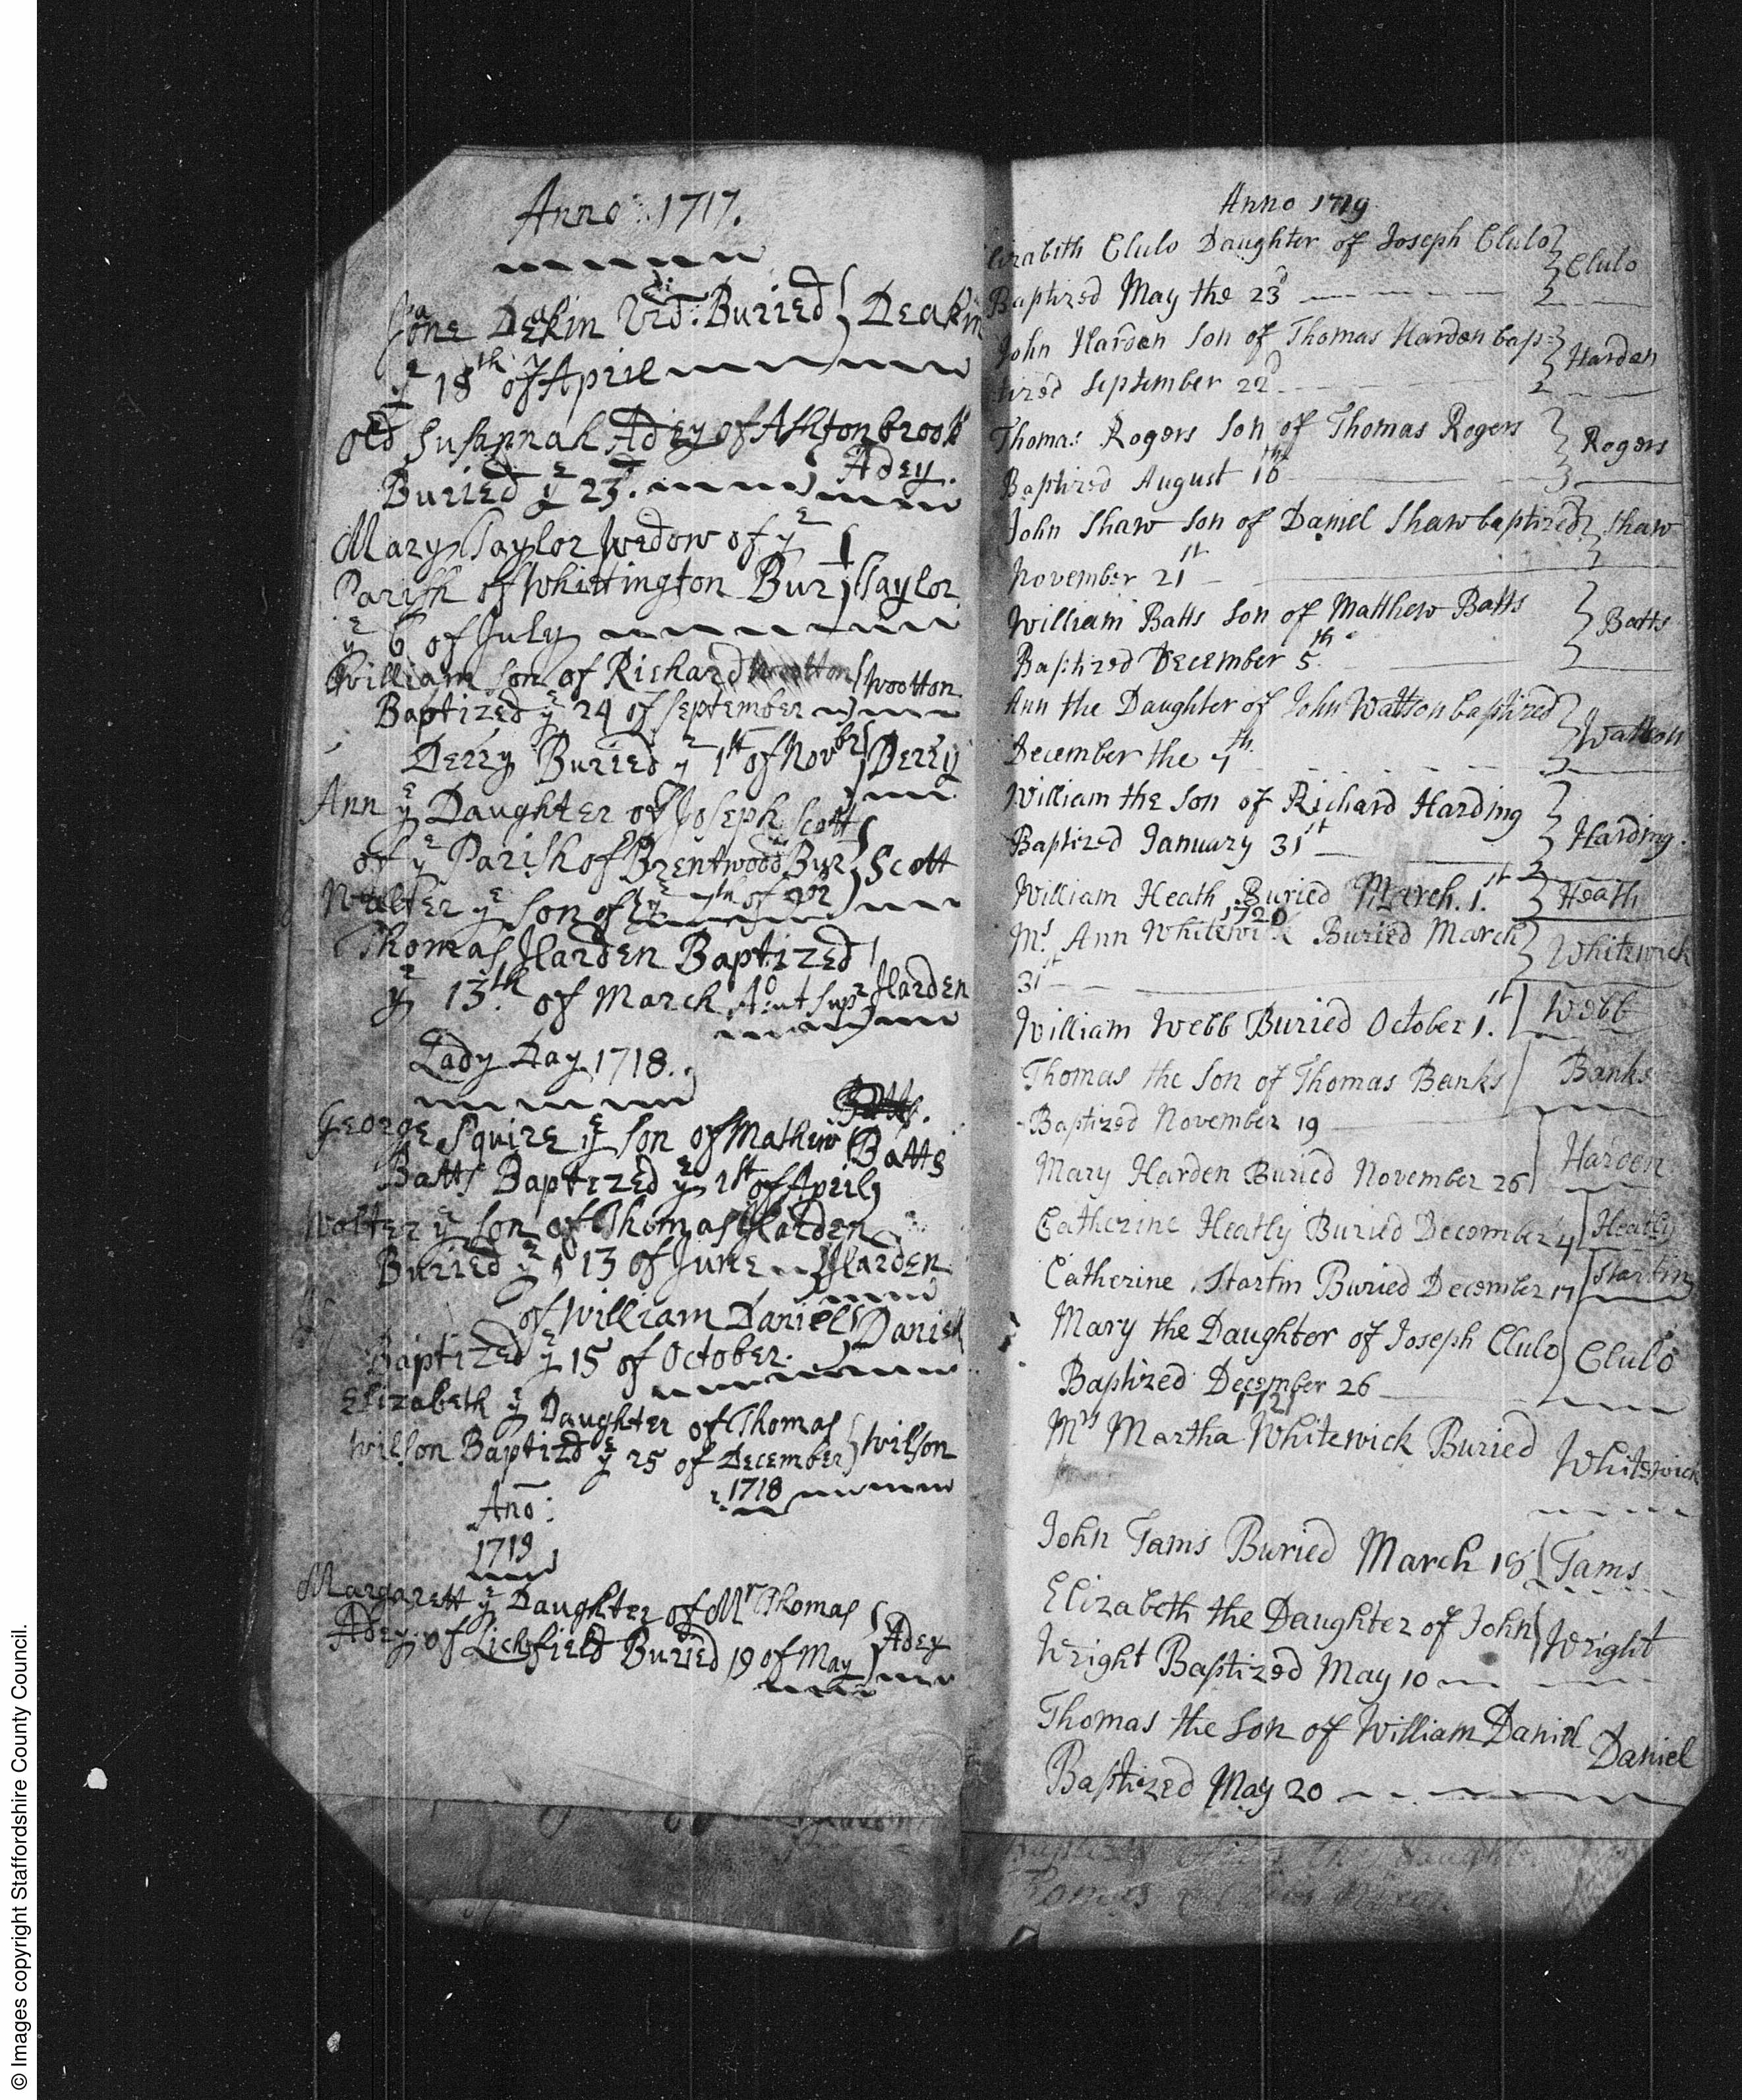 Anno 1717.
Jane Deakin Buried Deakin
yᵉ 18th of April
Old Susannah Adey of Ashtonbrook
Buried yᵉ 23d. Adey.
Mary Taylor Wedow of yᵉ
Parish of Whittington Bur Taylor
yᵉ 6 of July
William Son of Richard Wootton Wootton
Baptized yᵉ 24 of September
Derry Buried yᵉ 1st of Novbr Derry
Ann yᵉ Daughter of Joseph Scott
of yᵉ Parish of Brentwood Bur Scott
yᵉ 7th of
Walter yᵉ Son of
Thomas Harden Baptized
yᵉ 13th of March Harden
Lady Day 1718.
Batts.
George Squire yᵉ Son of Mathew Batts
Batts Baptized yᵉ 1st of April
Walter yᵉ Son of Thomas Harden
Buried yᵉ 13 of June Harden
of William Daniel Daniel
Baptized yᵉ 15 of October.
Elizabeth yᵉ Daughter of Thomas
Wilson Baptizd yᵉ 25 of December Wilson
1718
Ano:
1719
Margarett yᵉ Daughter of Mr Thomas
Adey of Lichfield Buried 19 of May Adey
Anno 1719
lizabeth Clulo Daughter of Joseph Clulo Clulo
Baptized May the 23d
John Harden Son of Thomas Harden bap= Harden
tized September 22d
Thomas Rogers Son of Thomas Rogers Rogers
Baptized August 16th
John Shaw Son of Daniel Shaw baptized Shaw
November 21st
William Batts Son of Matthew Batts Batts
Baptized December 5th
Ann the Daughter of John Watson baptized Watson
December the 7th
William the Son of Richard Harding Harding.
Baptized January 31st
William Heath Buried March. 1st Heath
1720
Mrs Ann Whitewick Buried March Whitewick
31st
William Webb Buried October 1st Webb
Thomas the Son of Thomas Banks Banks
Baptized November 19
Mary Harden Buried November 26 Harden
Catherine Heatly Buried December 4 Heatly
Catherine Startin Buried December 17 Startin
Mary the Daughter of Joseph Clulo Clulo
Baptized December 26
1721
Mrs Martha Whitewick Buried Whitewick
John Tams Buried March 18 Tams
Elizabeth the Daughter of John Wright
Wright Baptized May 10
Thomas the Son of William Daniel Daniel
Baptized May 20
© Images copyright Staffordshire County Council.